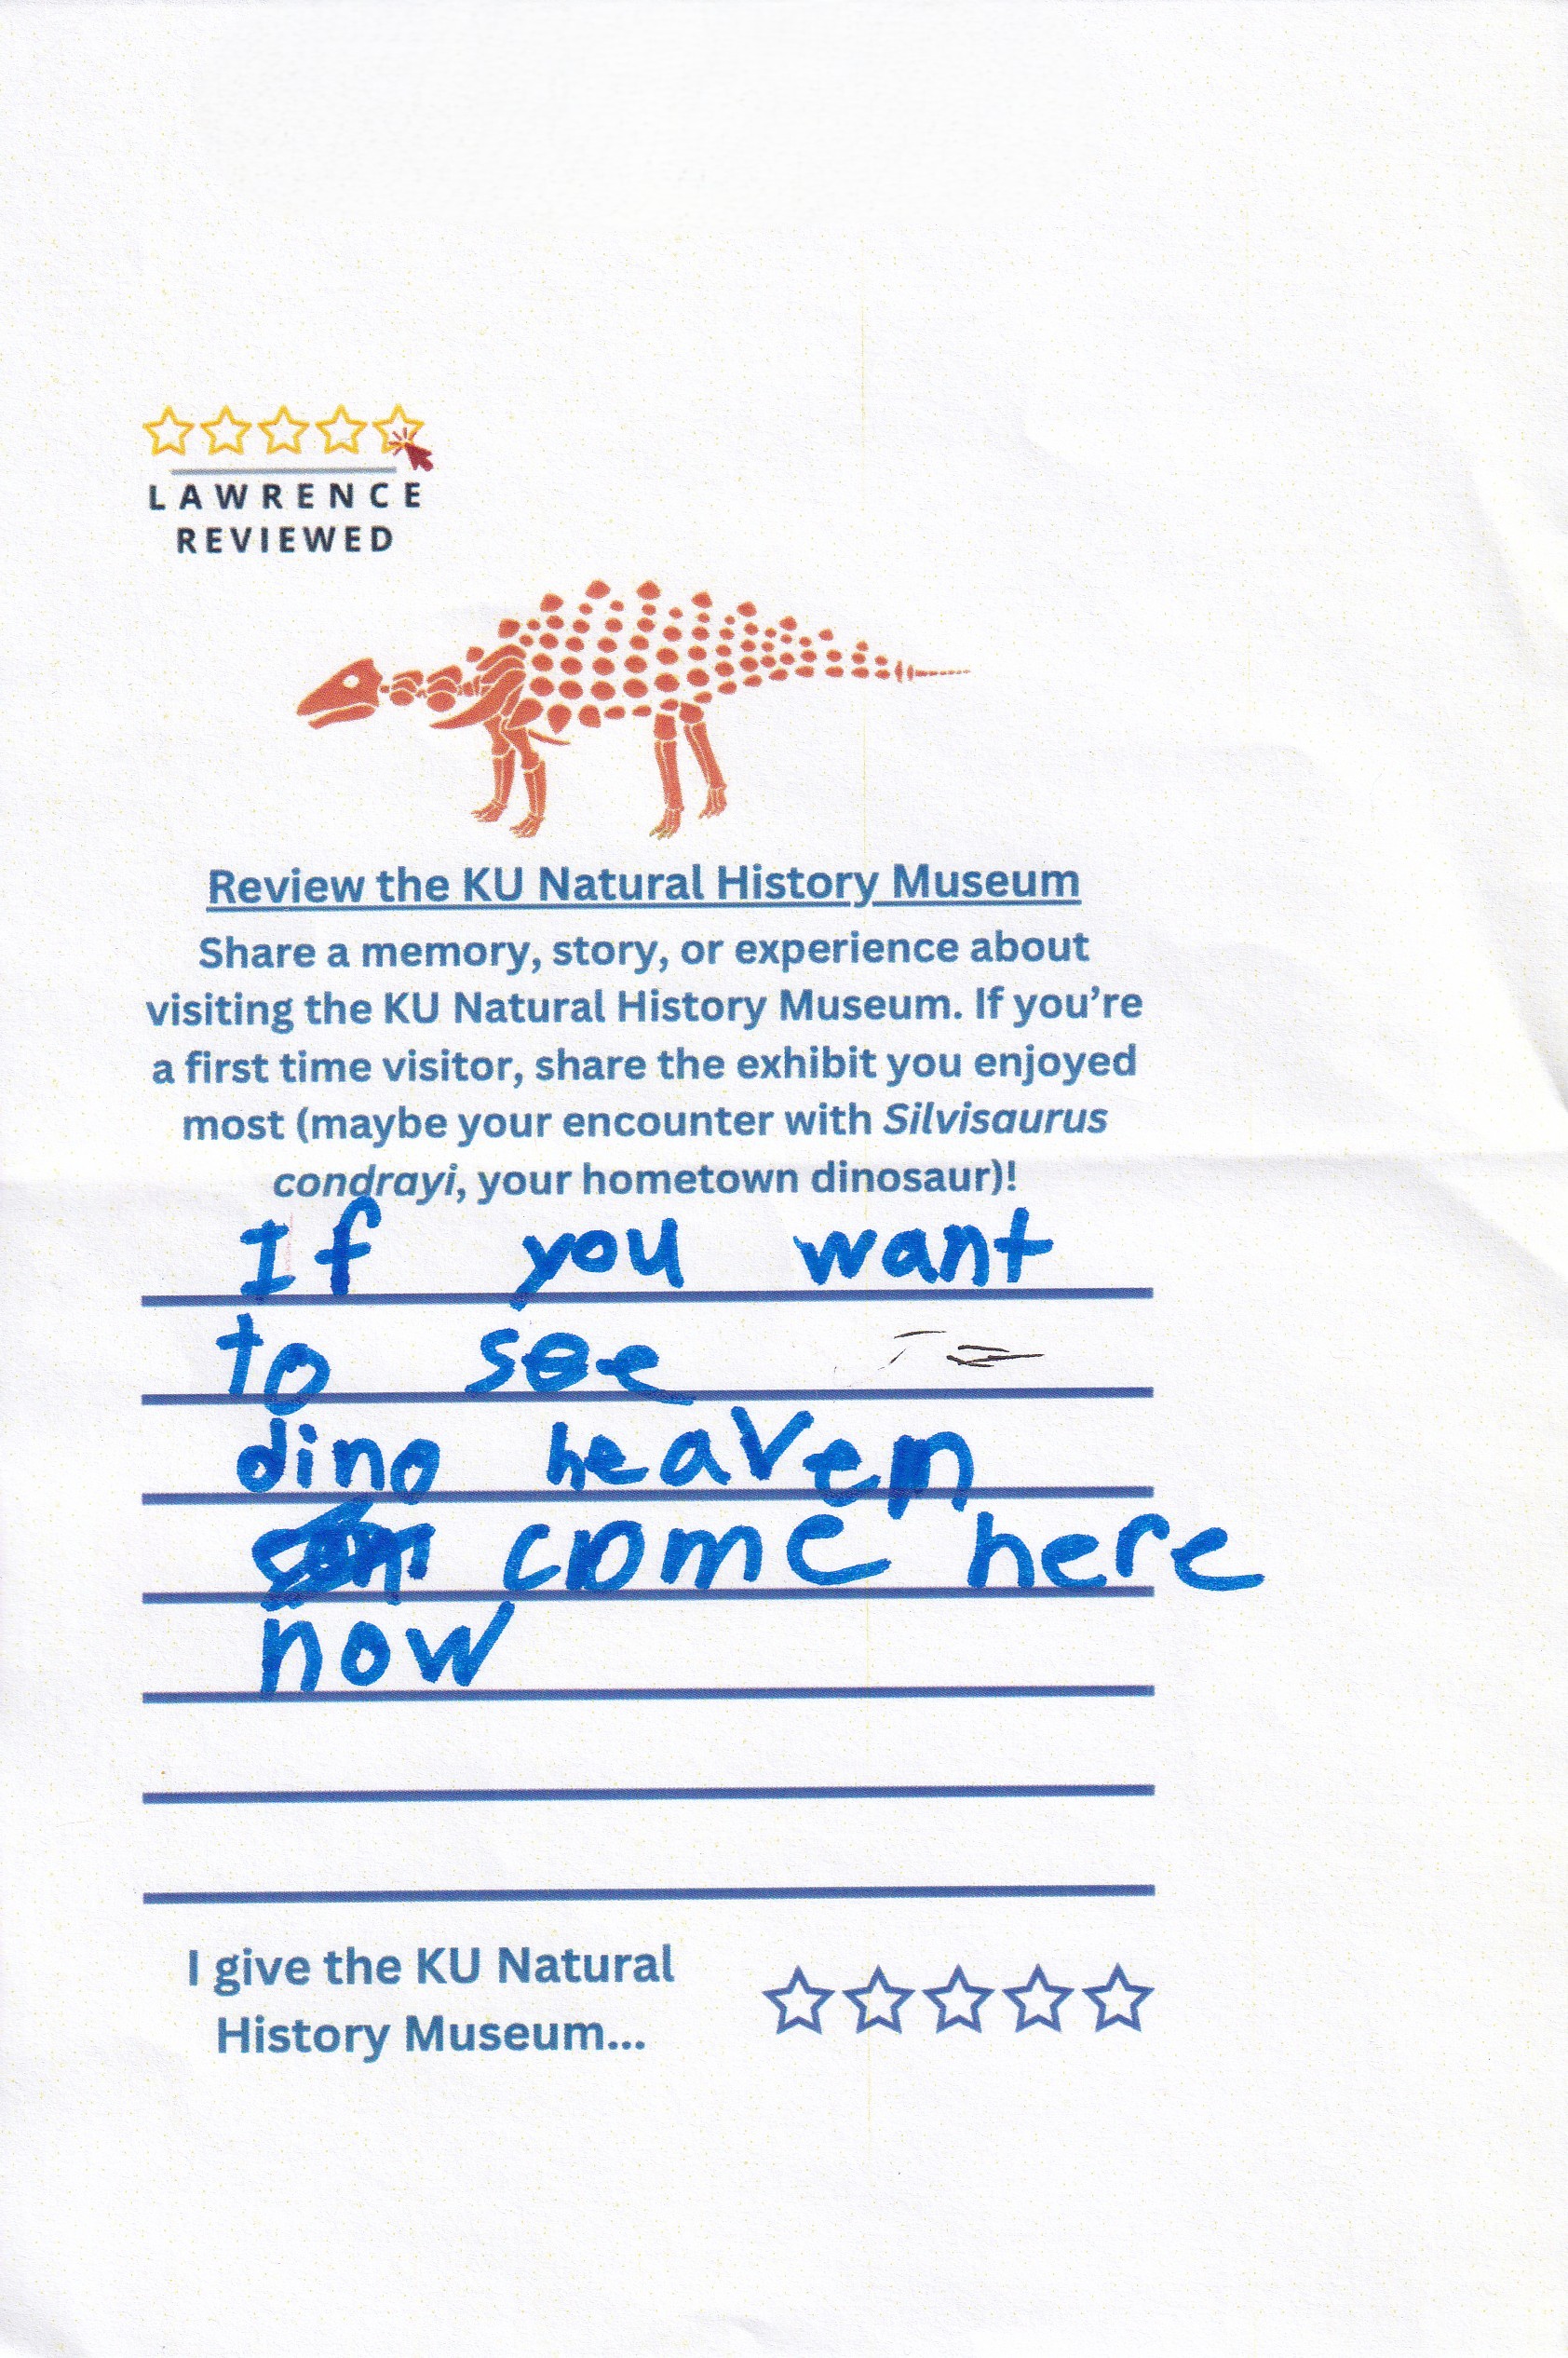 LAWRENCE
REVIEWED
Review the KU Natural History Museum
Share a memory, story, or experience about
visiting the KU Natural History Museum. If you're
a first time visitor, share the exhibit you enjoyed
most (maybe your encounter with Silvisaurus
condrayi, your hometown dinosaur)!
If you want
to see
dino heaven
come here
now
I give the KU Natural
History Museum...